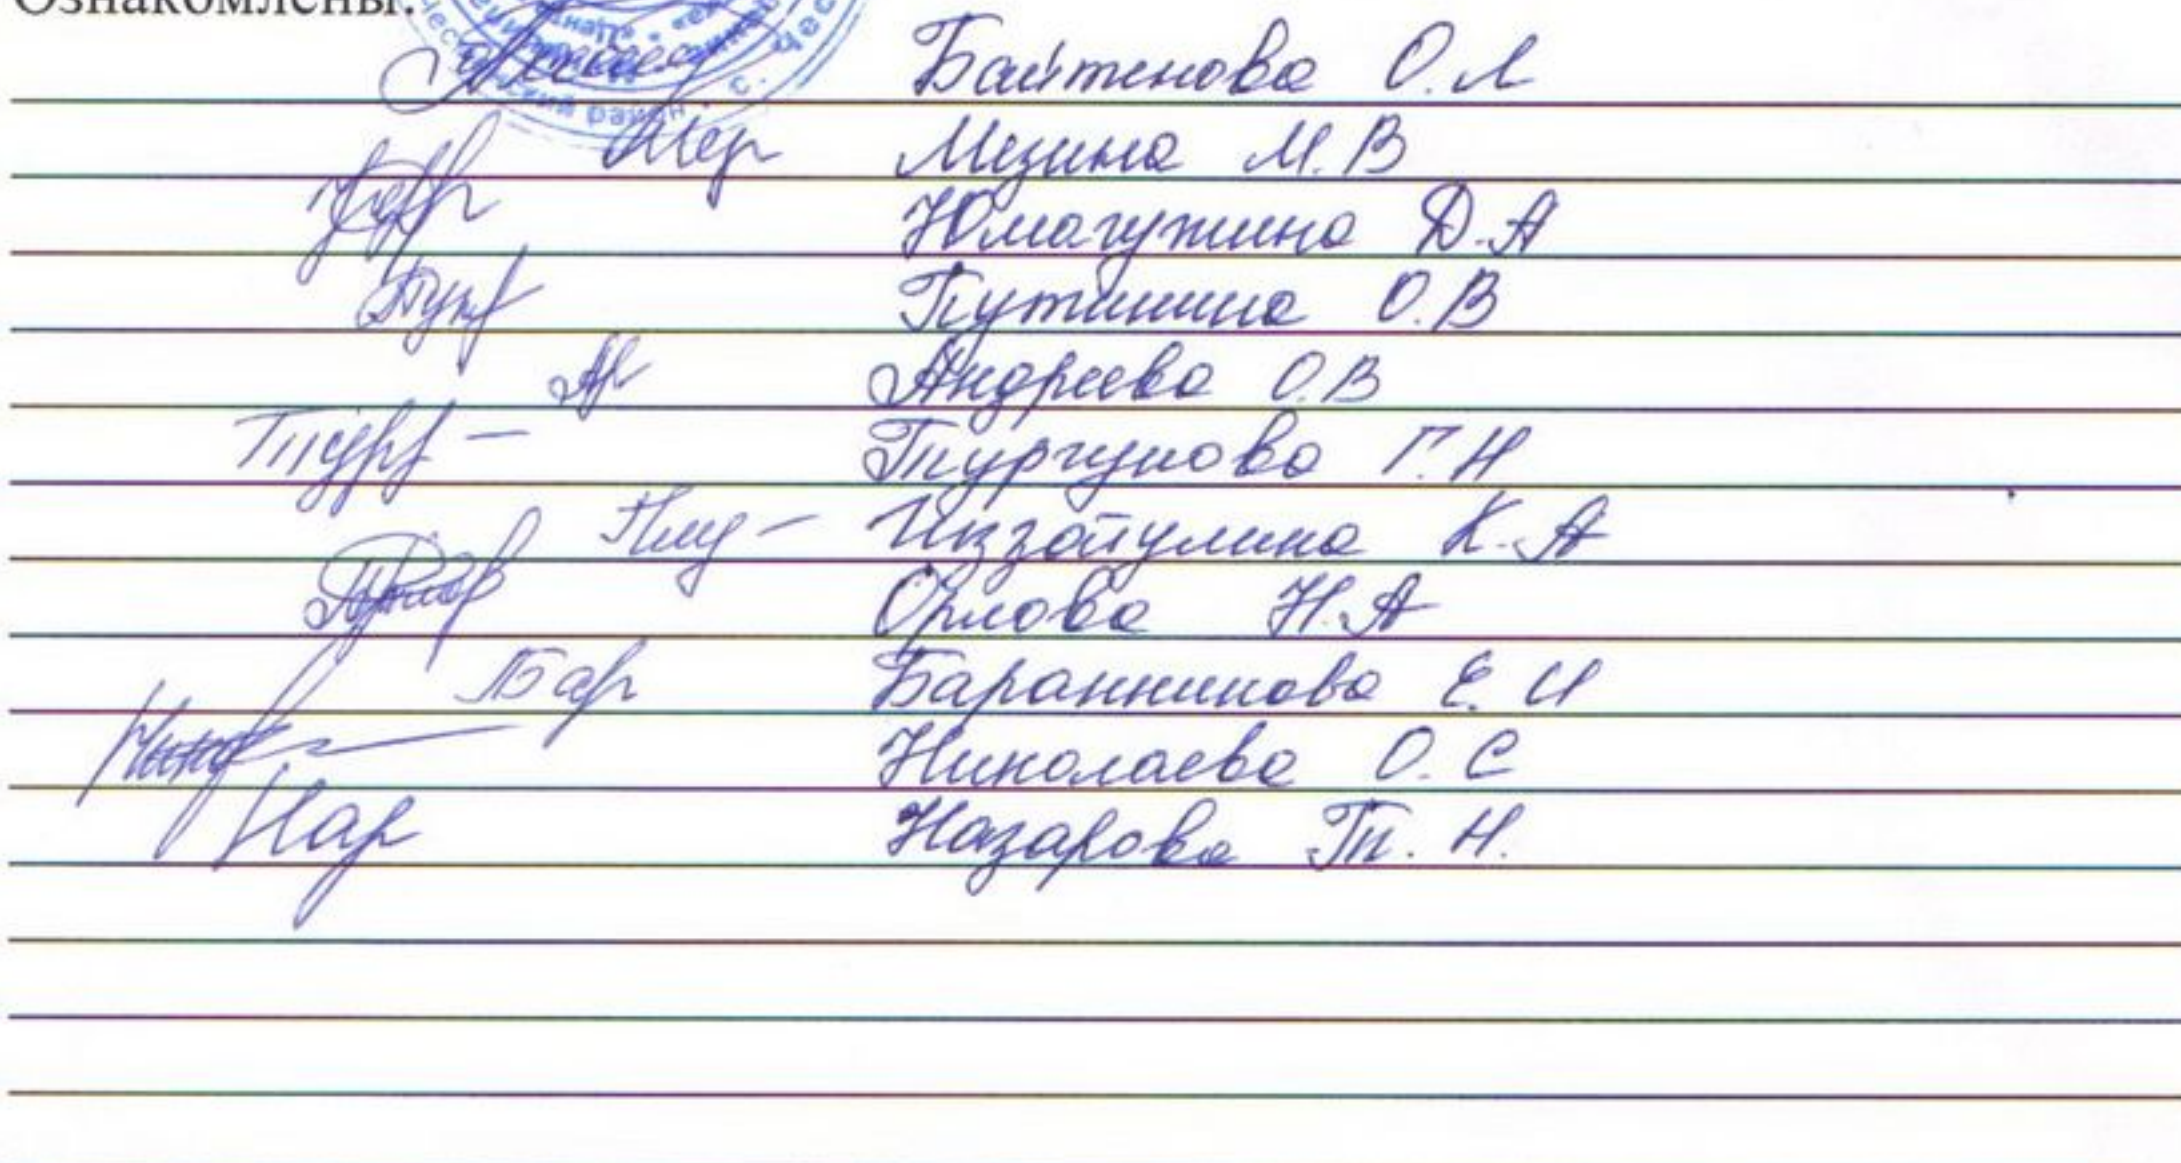 Ознакомлены:
Байтенова О.Л
Мезина М.В
Юмагужина Д.А
Путинина О.В
Андреева О.В
Тургунова Г.Н
Иззатулина К.А
Орлова Н.А
Бар Баранникова Е.И
Николаева О.С
Назарова Т.Н.